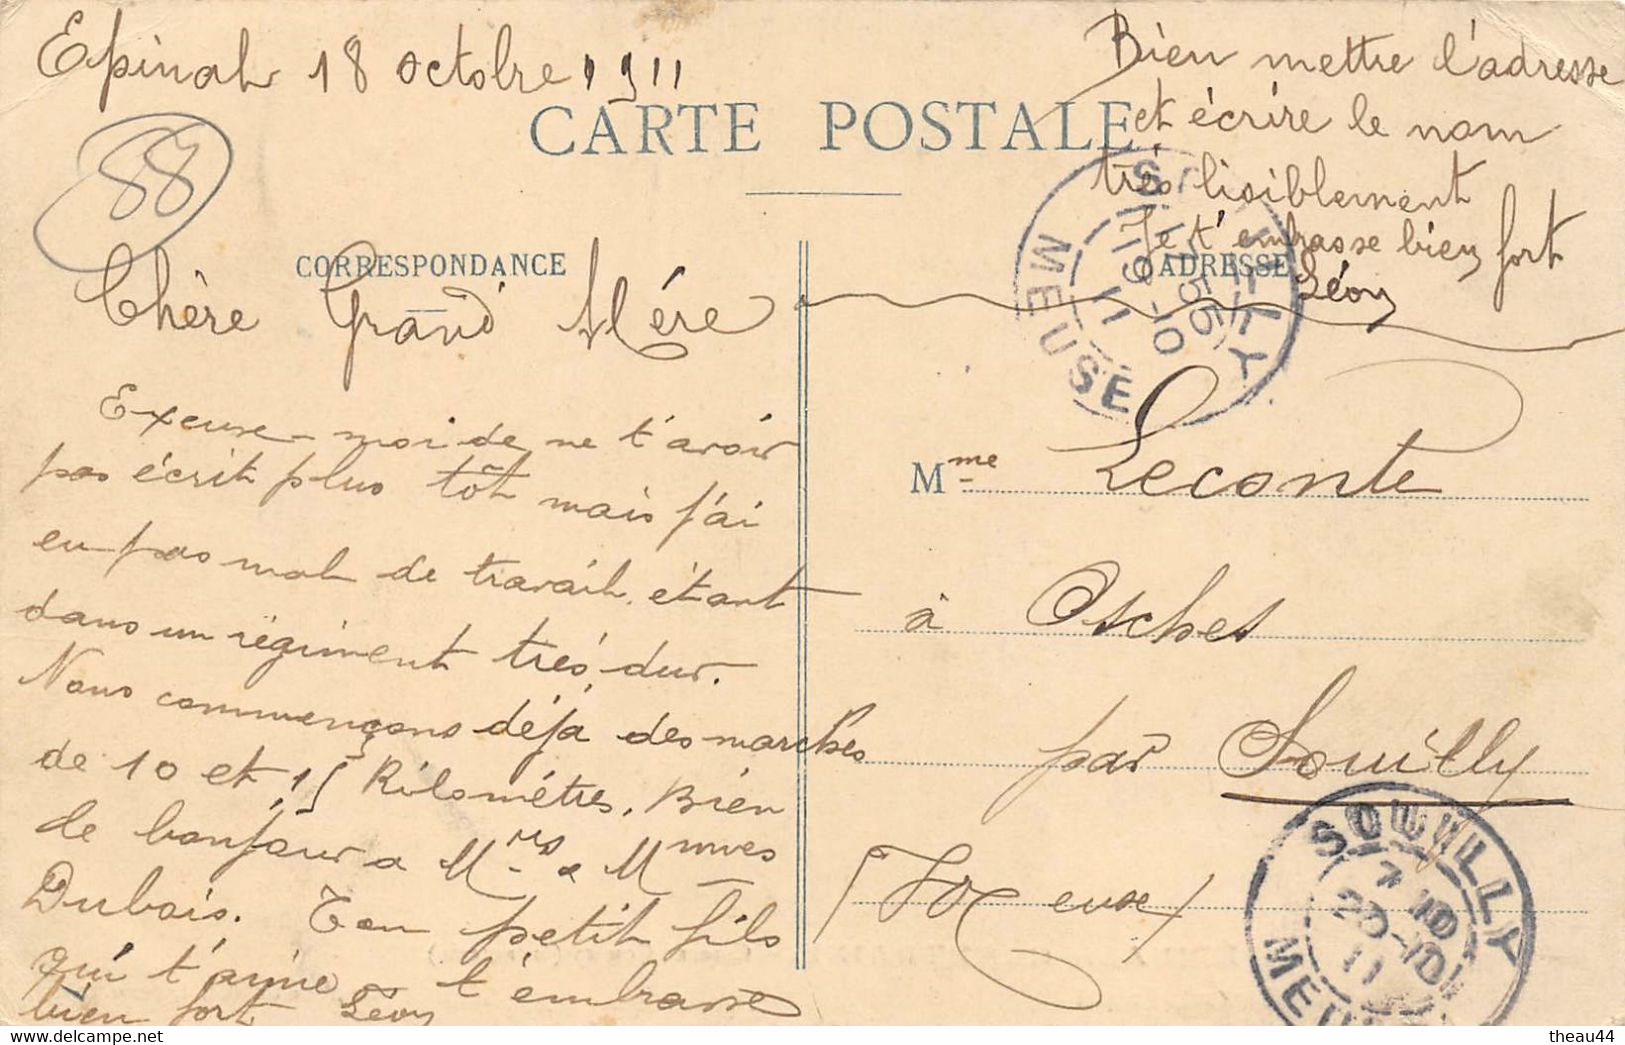 Epinal 18 octobre 1911
88
CARTE POSTALE
CORRESPONDANCE
ADRESSE
Bien mettre l'adresse
et écrire le nom
très lisiblement
Je t'embrasse bien fort
Léon
Chère Grand Mére
Excuse-moi de ne t'avoir
pas écrit plus tôt mais j'ai
eu pas mal de travail, étant
dans un régiment très dur.
Nous commençons déjà des marches
de 10 et 15 Kilométres. Bien
de bonjour a Mrs & Mmes
Dubois. Ton petit fils
qui t'aime t'embrasse
bien fort Léon
SOUILLY
11 55
19-10
11
MEUSE
Mme Leconte
à Osches
par Souilly
(Meuse)
SOUILLY
7 10
20-10
11
MEUSE
theau44